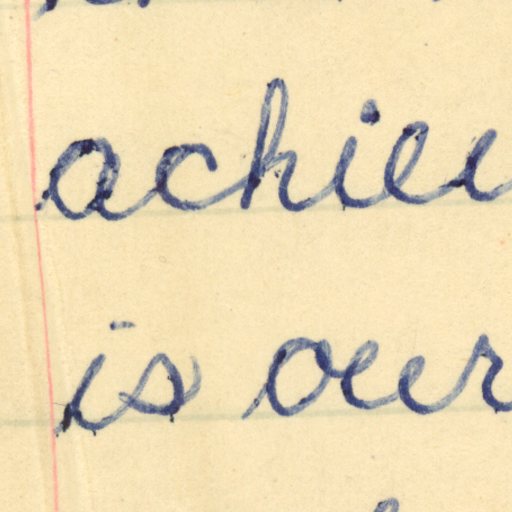 achiev
is our